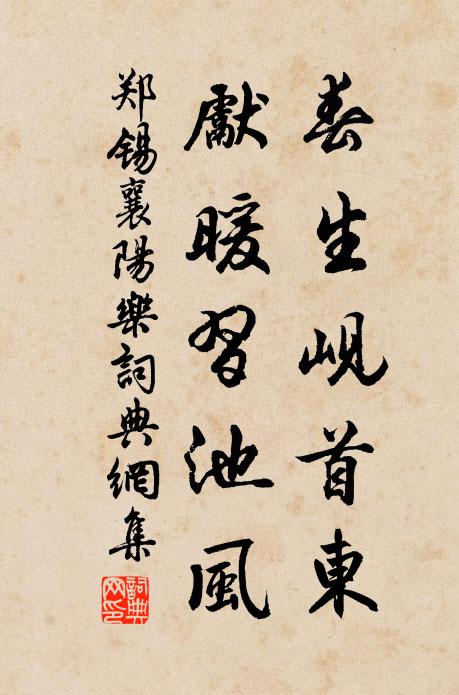 春生峴首東
獻暖習池風
郑锡襄陽樂詞典網集
詞典网印